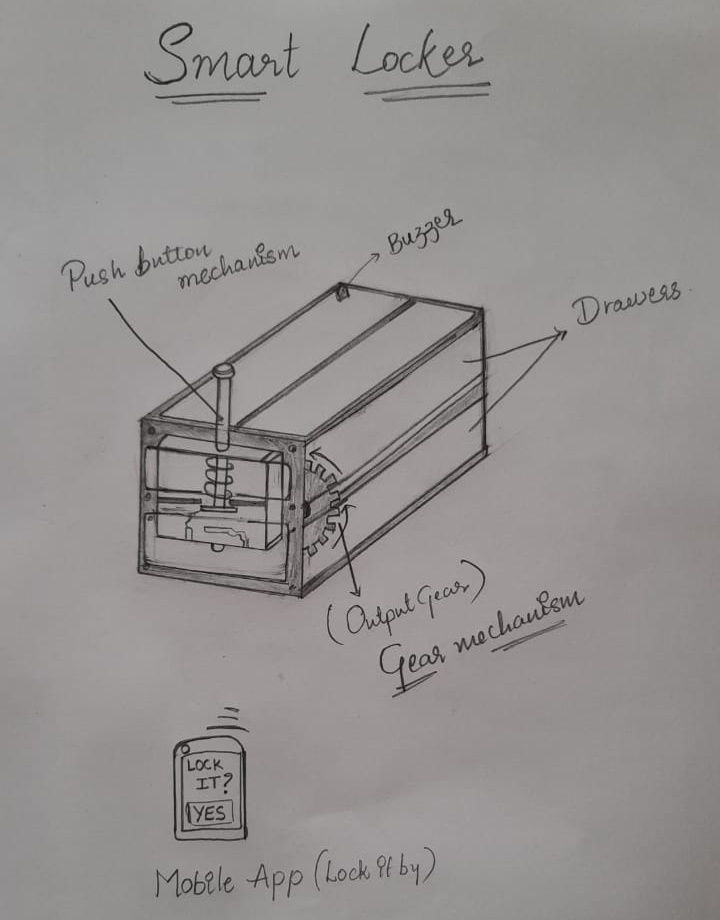 Smart Locker
Buzzer
Push button
mechanism
Drawers
(Output Gear)
Gear mechanism
LOCK
IT?
YES
Mobile App (Lock it by)